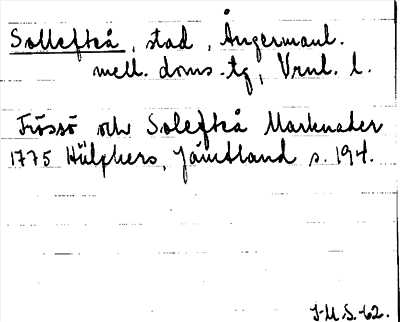 Sollefteå, stad, Ångermanl.
mell. doms.-tg, Vrnl. l.
Frösö och Solefteå Marknader
1775 Hülphers, Jämtland s. 194.
J-M S.-62.